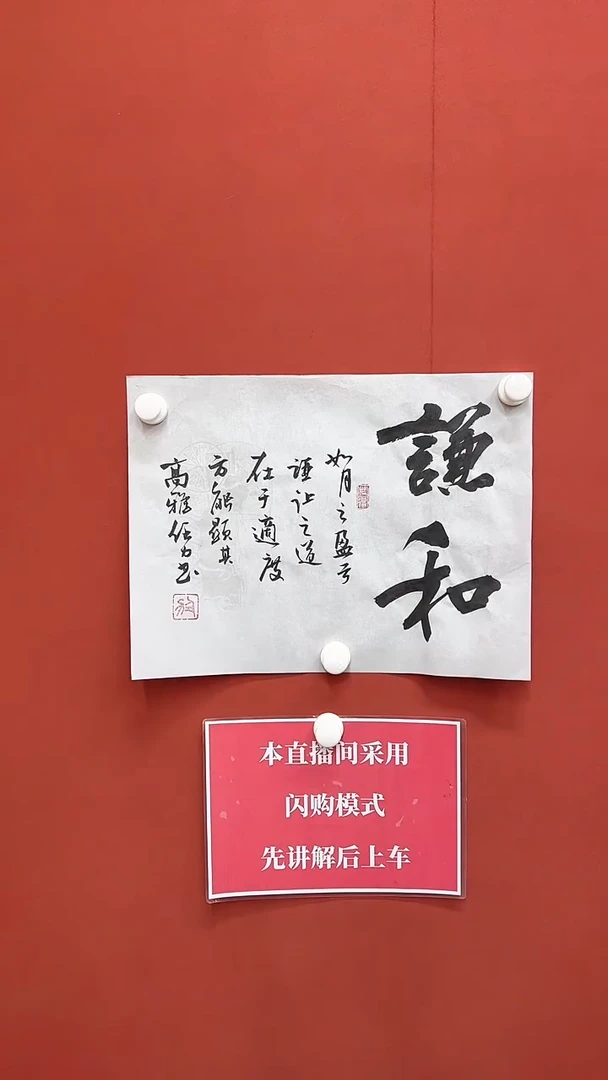 謙和
如月之盈亏
谦让之道
在于適度
方能顯其
高雅任力书
本直播间采用
闪购模式
先讲解后上车